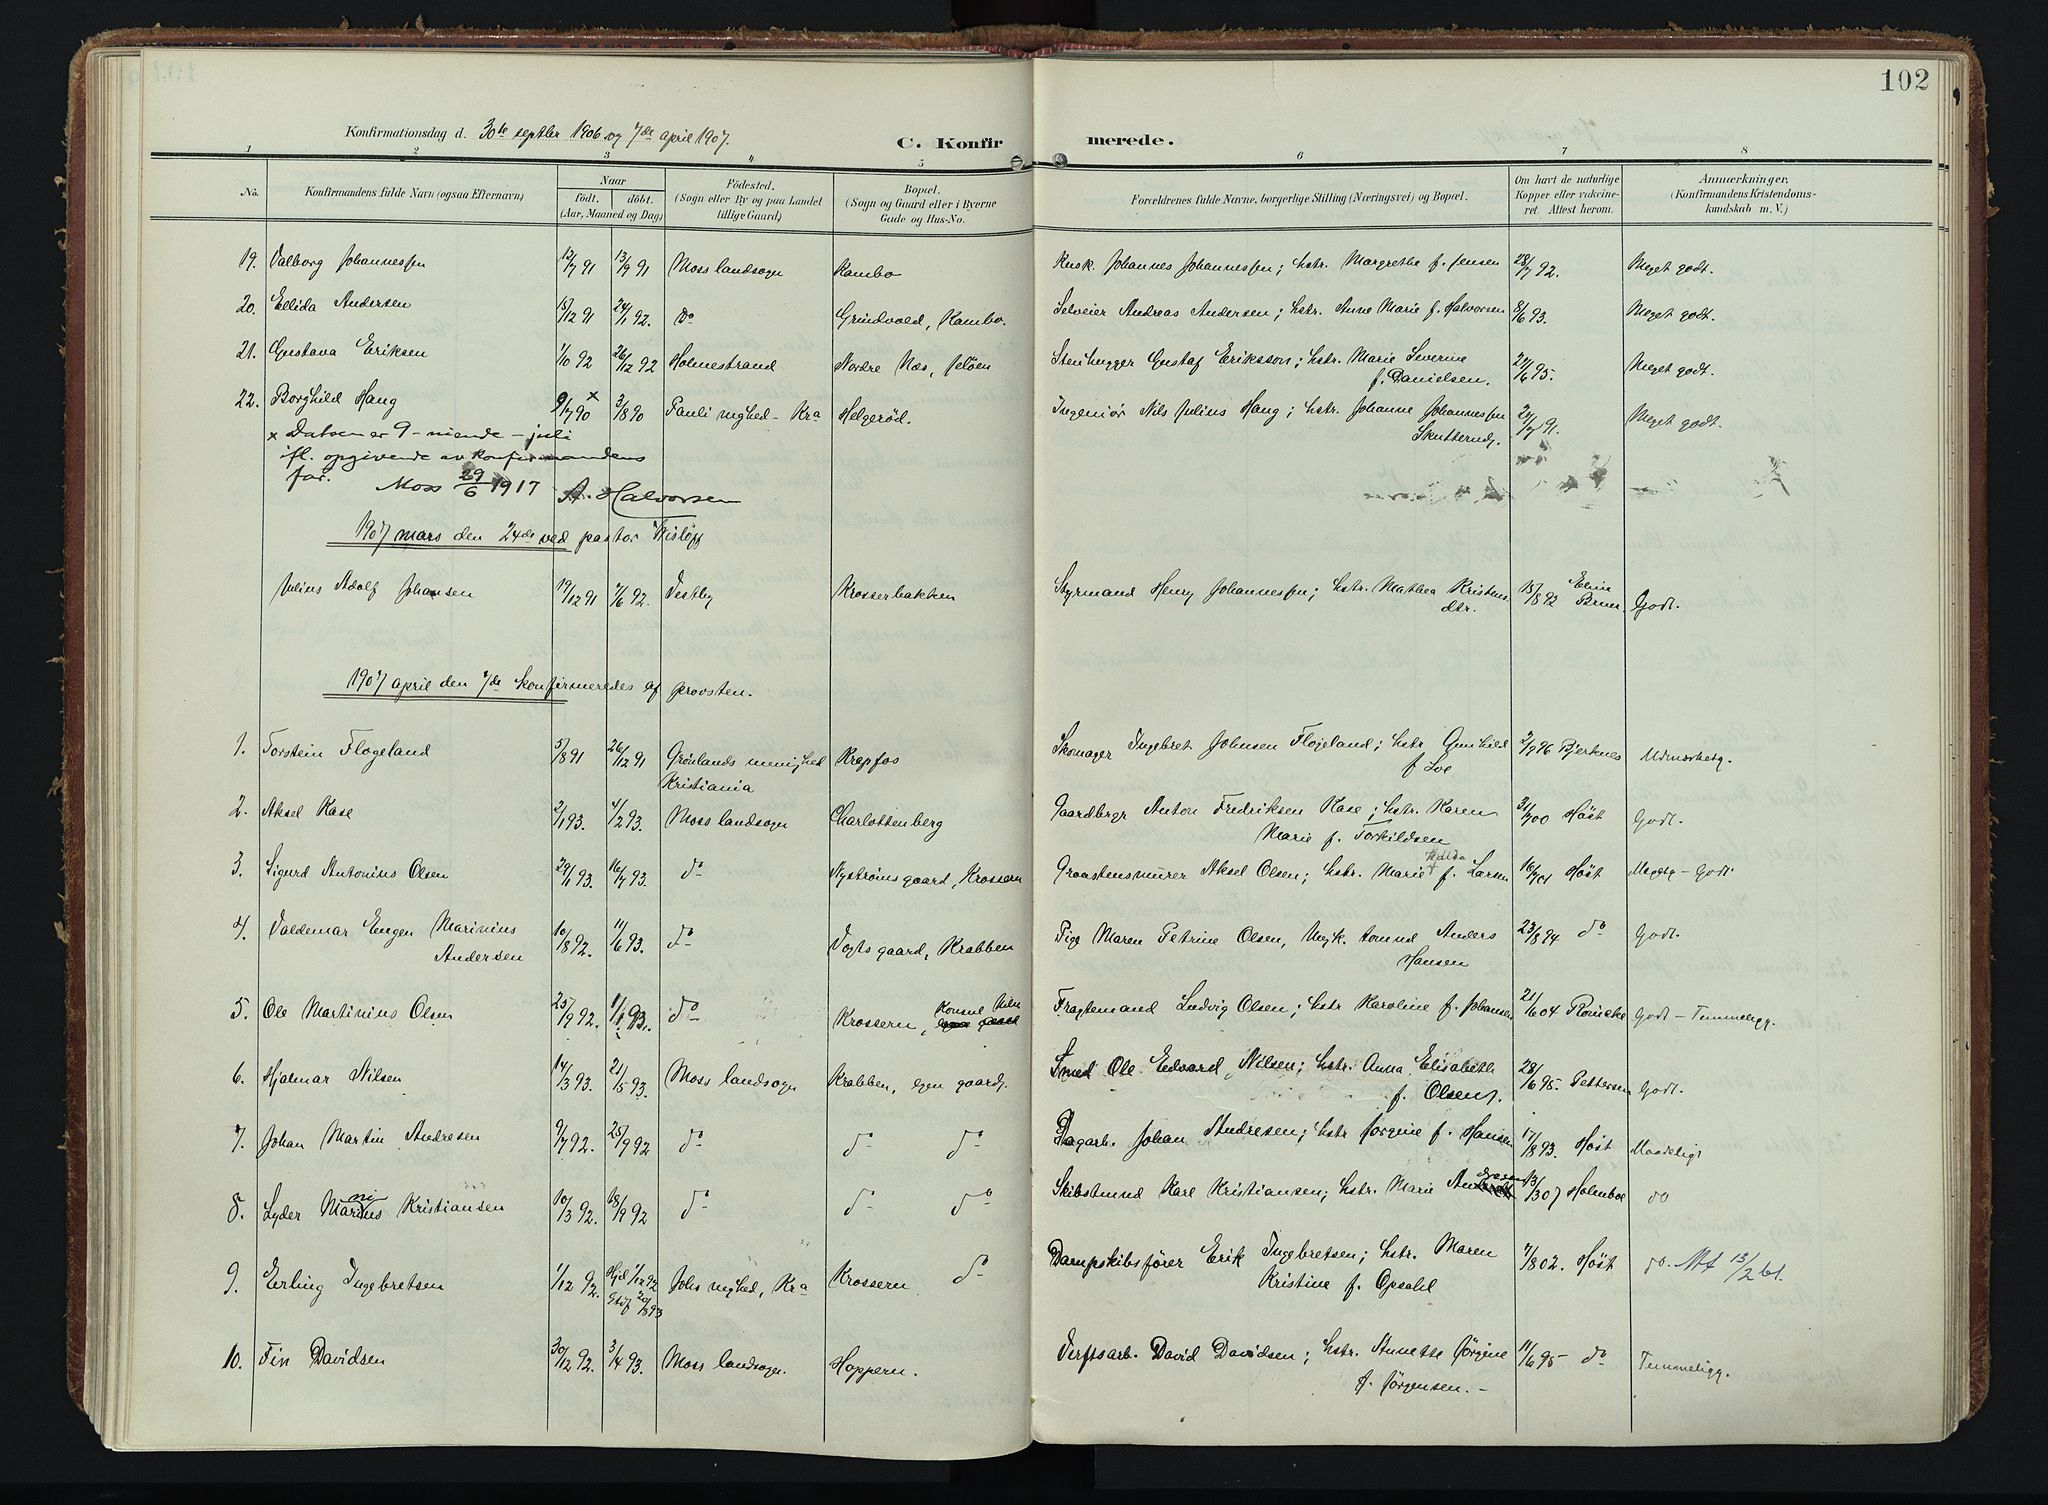 102
Konfirmationsdag d. 30te septbr 1906 og 7de april 1907.
C. Konfirmerede.
1 2 3 4 5 6 7 8
No. Konfirmandens fulde Navn (ogsaa Efternavn) Naar födt. döbt. (Aar, Maaned og Dag) Födested. (Sogn eller By og paa Landet tillige Gaard) Bopæl. (Sogn og Gaard eller i Byerne Gade og Hus-No. Forældrenes fulde Navne, borgerlige Stilling (Næringsvei) og Bopæl. Om havt de naturlige Kopper eller vakcineret. Attest herom. Anmærkninger. (Konfirmandens Kristendomskundskab m. V.)
19. Valborg Johannessen 12/7 91 13/9 91 Moss landsogn Kambo Kusk Johannes Johannessen; hstr. Margrethe f. Jensen 28/7 92. Meget godt.
20. Ellida Andersen 15/12 91 24/1 92. do Grindvold, Kambo. Selveier Andreas Andersen; hstr. Anne Marie f. Halvorsen 8/6 93. Meget godt.
21. Gustava Eriksen 1/10 92 26/12 92 Holmestrand Nordre Næs, Jeløen Stenhugger Gustaf Eriksson; hstr. Marie Severine
f. Danielsen. 22/6 95. Meget godt.
22. Borghild Haug 9/7 90 x 3/8 90 Pauli mghed - Kra Helgerød. Ingeniør Nils Julius Haug; hstr. Johanne Johannessen
Skutterud. 24/7 91. Meget godt.
x Datoen er 9 - niende - juli
fl. opgivende av konfirmandens
far. Moss 29/6 1917 A. Halvorsen
1907 mars den 24de ved pastor Wisløff
Julius Adolf Johansen 19/12 91 7/6 92. Vestby Krosserbakken Styrmand Henry Johannessen; hstr. Mathea Kristens
dtr. 15/8 92 Brun. Godt.
1907 april den 7de konfirmeredes af provsten.
1. Torstein Flogeland 5/8 91 26/12 91 Grønlands menighed Krepfos Skomager Ingebret Johnsen Flogeland; hstr. Gunhild
Kristiania f. Loe 2/7 96 Bjerknes Udmærketg.
2. Aksel Kase 2/1 93. 4/2 93. Moss landsogn Charlottenberg Gaardbrgr Anton Fredriksen Kase; hstr. Karen
Marie f. Torkildsen 31/7 00 Høst Godt.
3. Sigurd Antonius Olsen 29/1 93. 16/7 93. do Nystrømsgaard, Krossern Graastensmurer Aksel Olsen; hstr. Marie Hilda f. Larsen 16/7 01 Høst Megetg - Godt
4. Valdemar Eugen Marinius
Andersen 10/8 92. 11/6 93. do Vogtsgaard, Krabben Pige Maren Petrine Olsen, Ungk. tømmd Anders
Hansen 23/8 94 do Godt.
5. Ole Martinius Olsen 25/9 92. 1/1 93. do Krossern, Konsul Fragtemand Ludvig Olsen; hstr Karoline f. Johansen 21/6 04 Godt - Temmeligg.
6. Hjalmar Nilsen 14/3 93. 21/5 93. Moss landsogn Krabben, egen gaard. Smed Ole Edvard Nilsen; hstr. Anna Elisabeth
f. Olsen. 28/6 95. Pettersen Godt.
7. Johan Martin Andresen 9/7 92. 25/9 92 do do do Dagarb. Johan Andresen; hstr Jørgine f. Hansen 17/8 93. Høst Maadeligt
8. Lyder Marinius Kristiansen 10/3 92. 18/9 92 do do do Skibstmmd Karl Kristiansen; hstr. Marie Andresen 13/3 07 Holmboe do
9. Erling Ingebretsen 1/12 92. Hjd 1/12 92 Johs mghed, Kra Krossern do Dampskibsfører Erik Ingebretsen; hstr. Maren
20/3 93 Kristine f. Opsahl 7/8 02. Høst do. Att 13/2 61.
10. Fin Davidsen 30/12 92. 3/4 93. Moss landsogn. Hoppern. Verftsarb. David Davidsen; hstr. Annette Jørgine
f. Jørgensen. - 11/6 95 do Temmeligg.